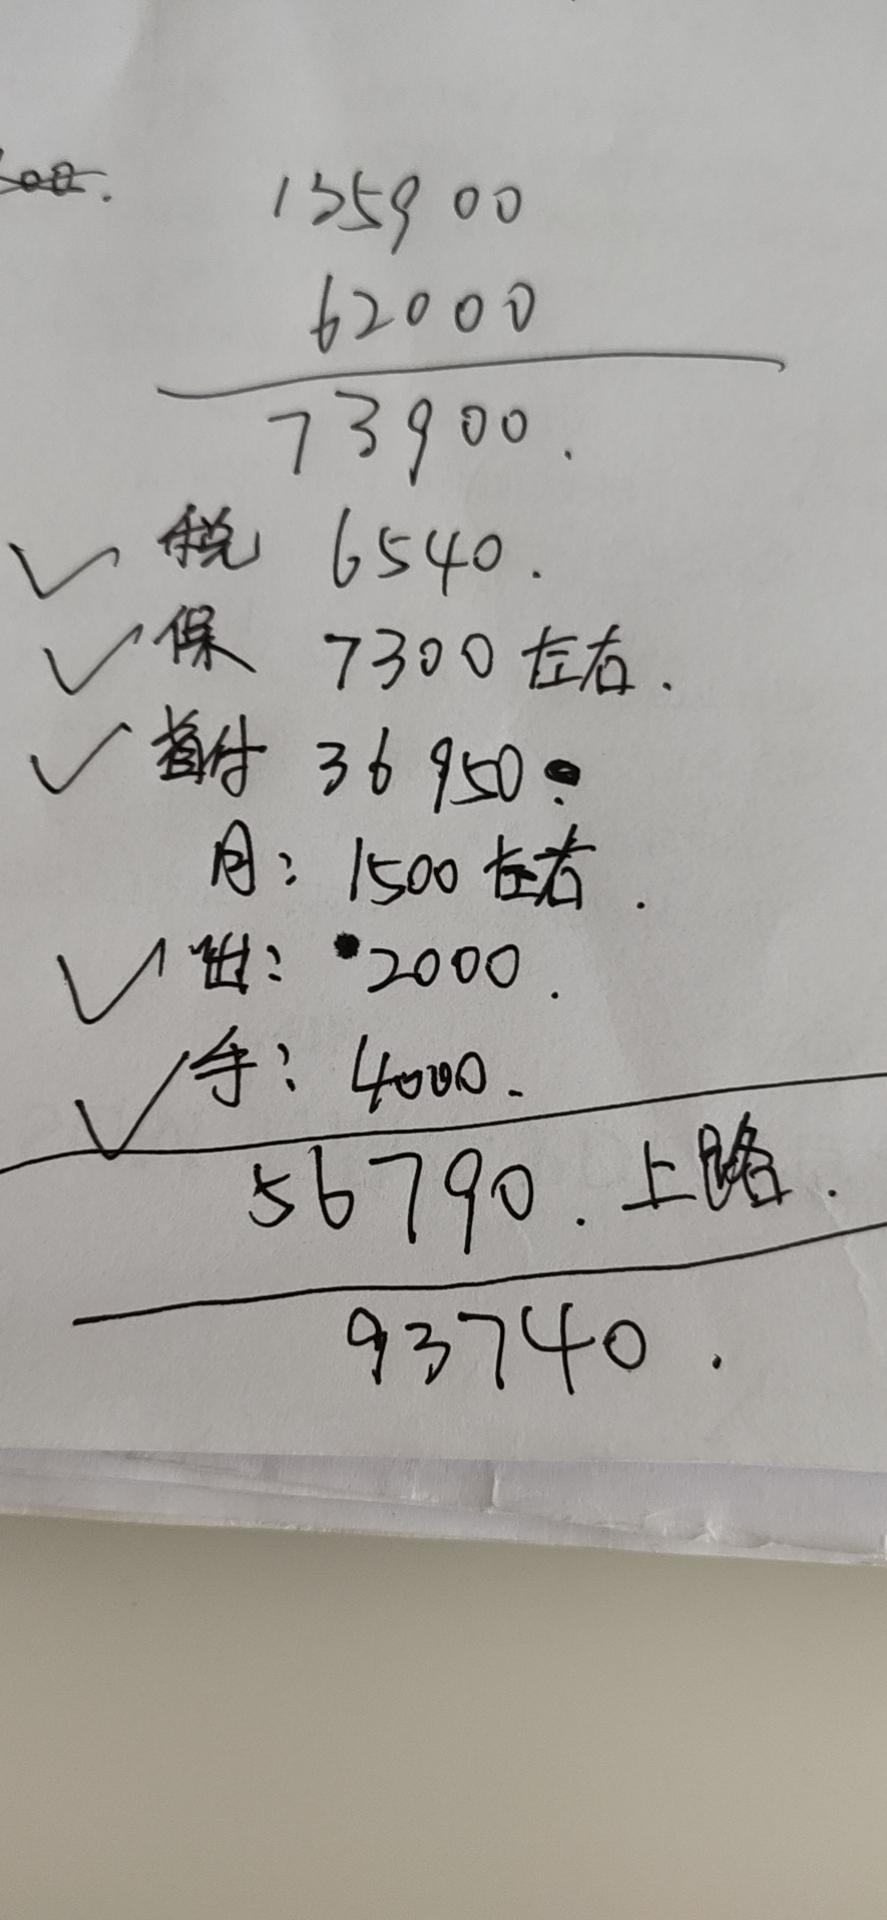 135900
62000
73900.
税 6540.
保 7300左右.
首付 36950.
月: 1500左右.
出: 2000.
手: 4000.
56790. 上路.
93740.